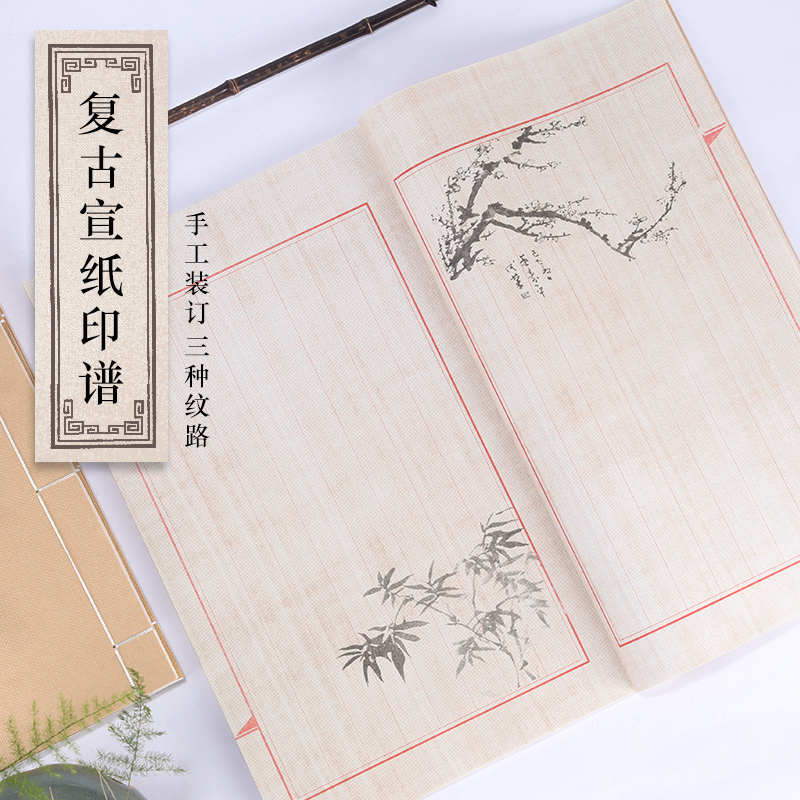 复古宣纸印谱
手工装订 三种纹路